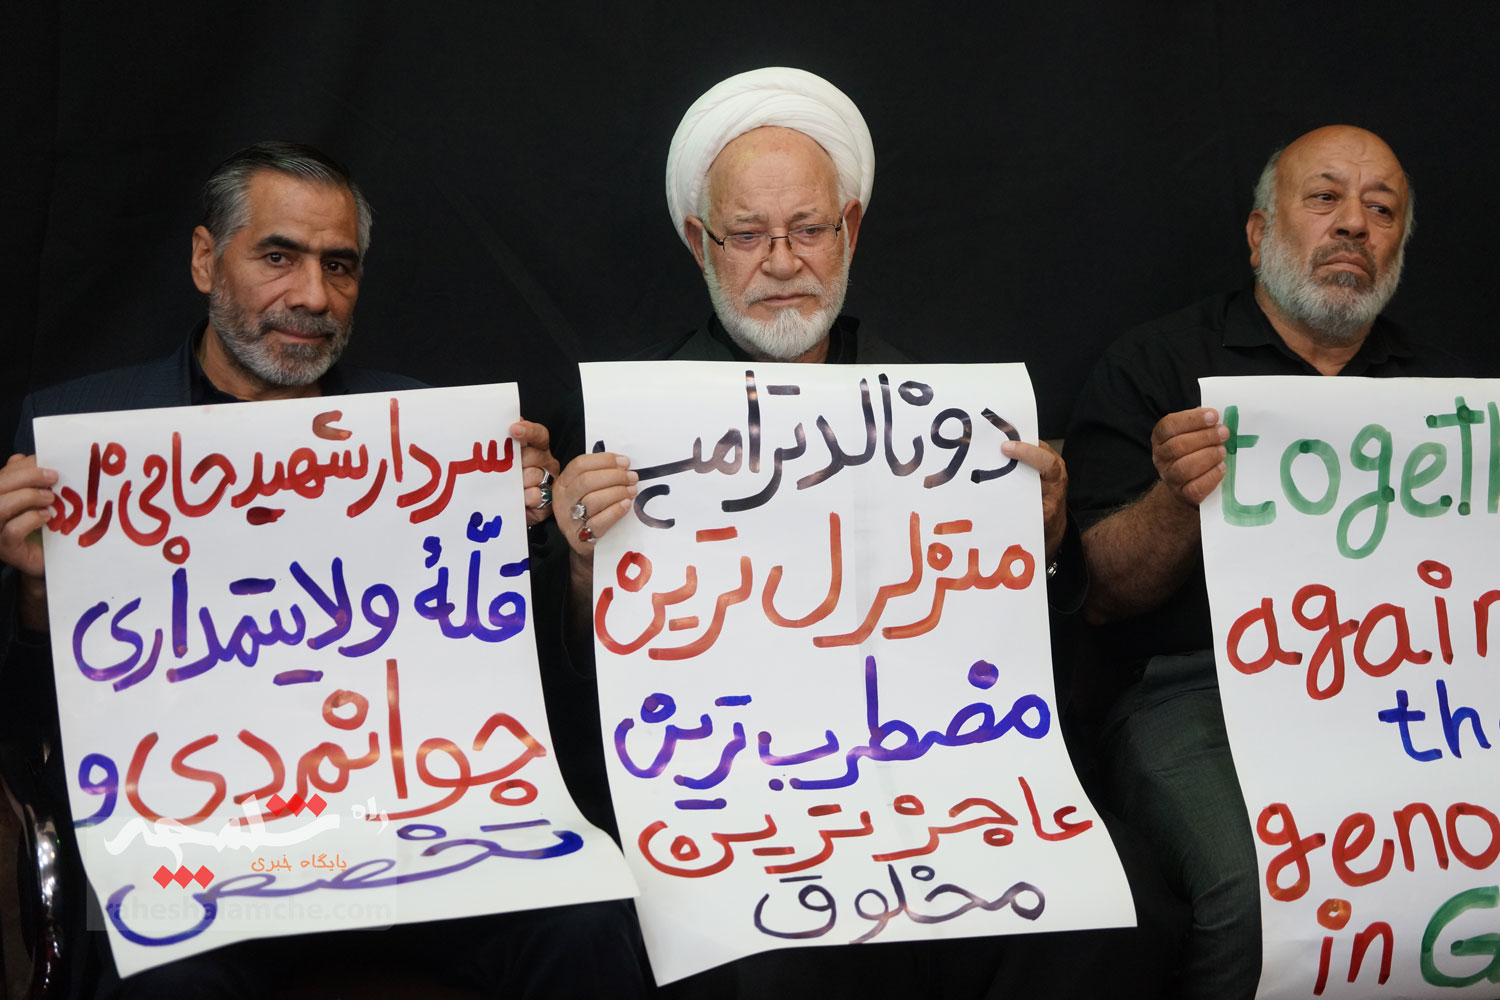 سردار شهید حاجی زاده
قلّهٔ ولایتمداری
جوانمردی و
تخصص
دونالد ترامپ
متزلزل ترین
مضطرب ترین
عاجز ترین
مخلوق
together
again
the
geno
in G
راه شلمچه
پایگاه خبری
raheshalamche.com